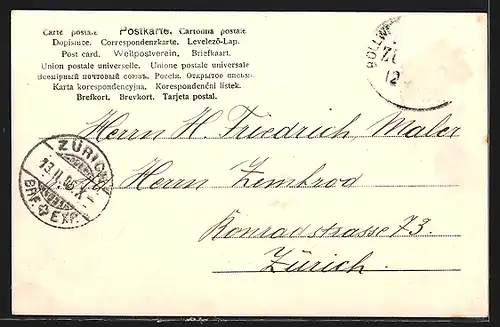 Carte postale. Postkarte. Cartolina postale
Dopisnice. Correspondenzkarte. Levelező-Lap.
Post card. Weltpostverein. Briefkaart.
Union postale universelle. Unione postale universale
Всемірный почтовый союзъ. Россія. Открытое письмо.
Karta korespondencyjna. Korespondenční lístek.
Brefkort. Brevkort. Tarjeta postal.
BOLLI
12
Herrn H. Friedrich, Maler
ZÜRICH
13.II.
BRF EXP
Herrn Zembrod
Konradstrasse 73.
Zürich.